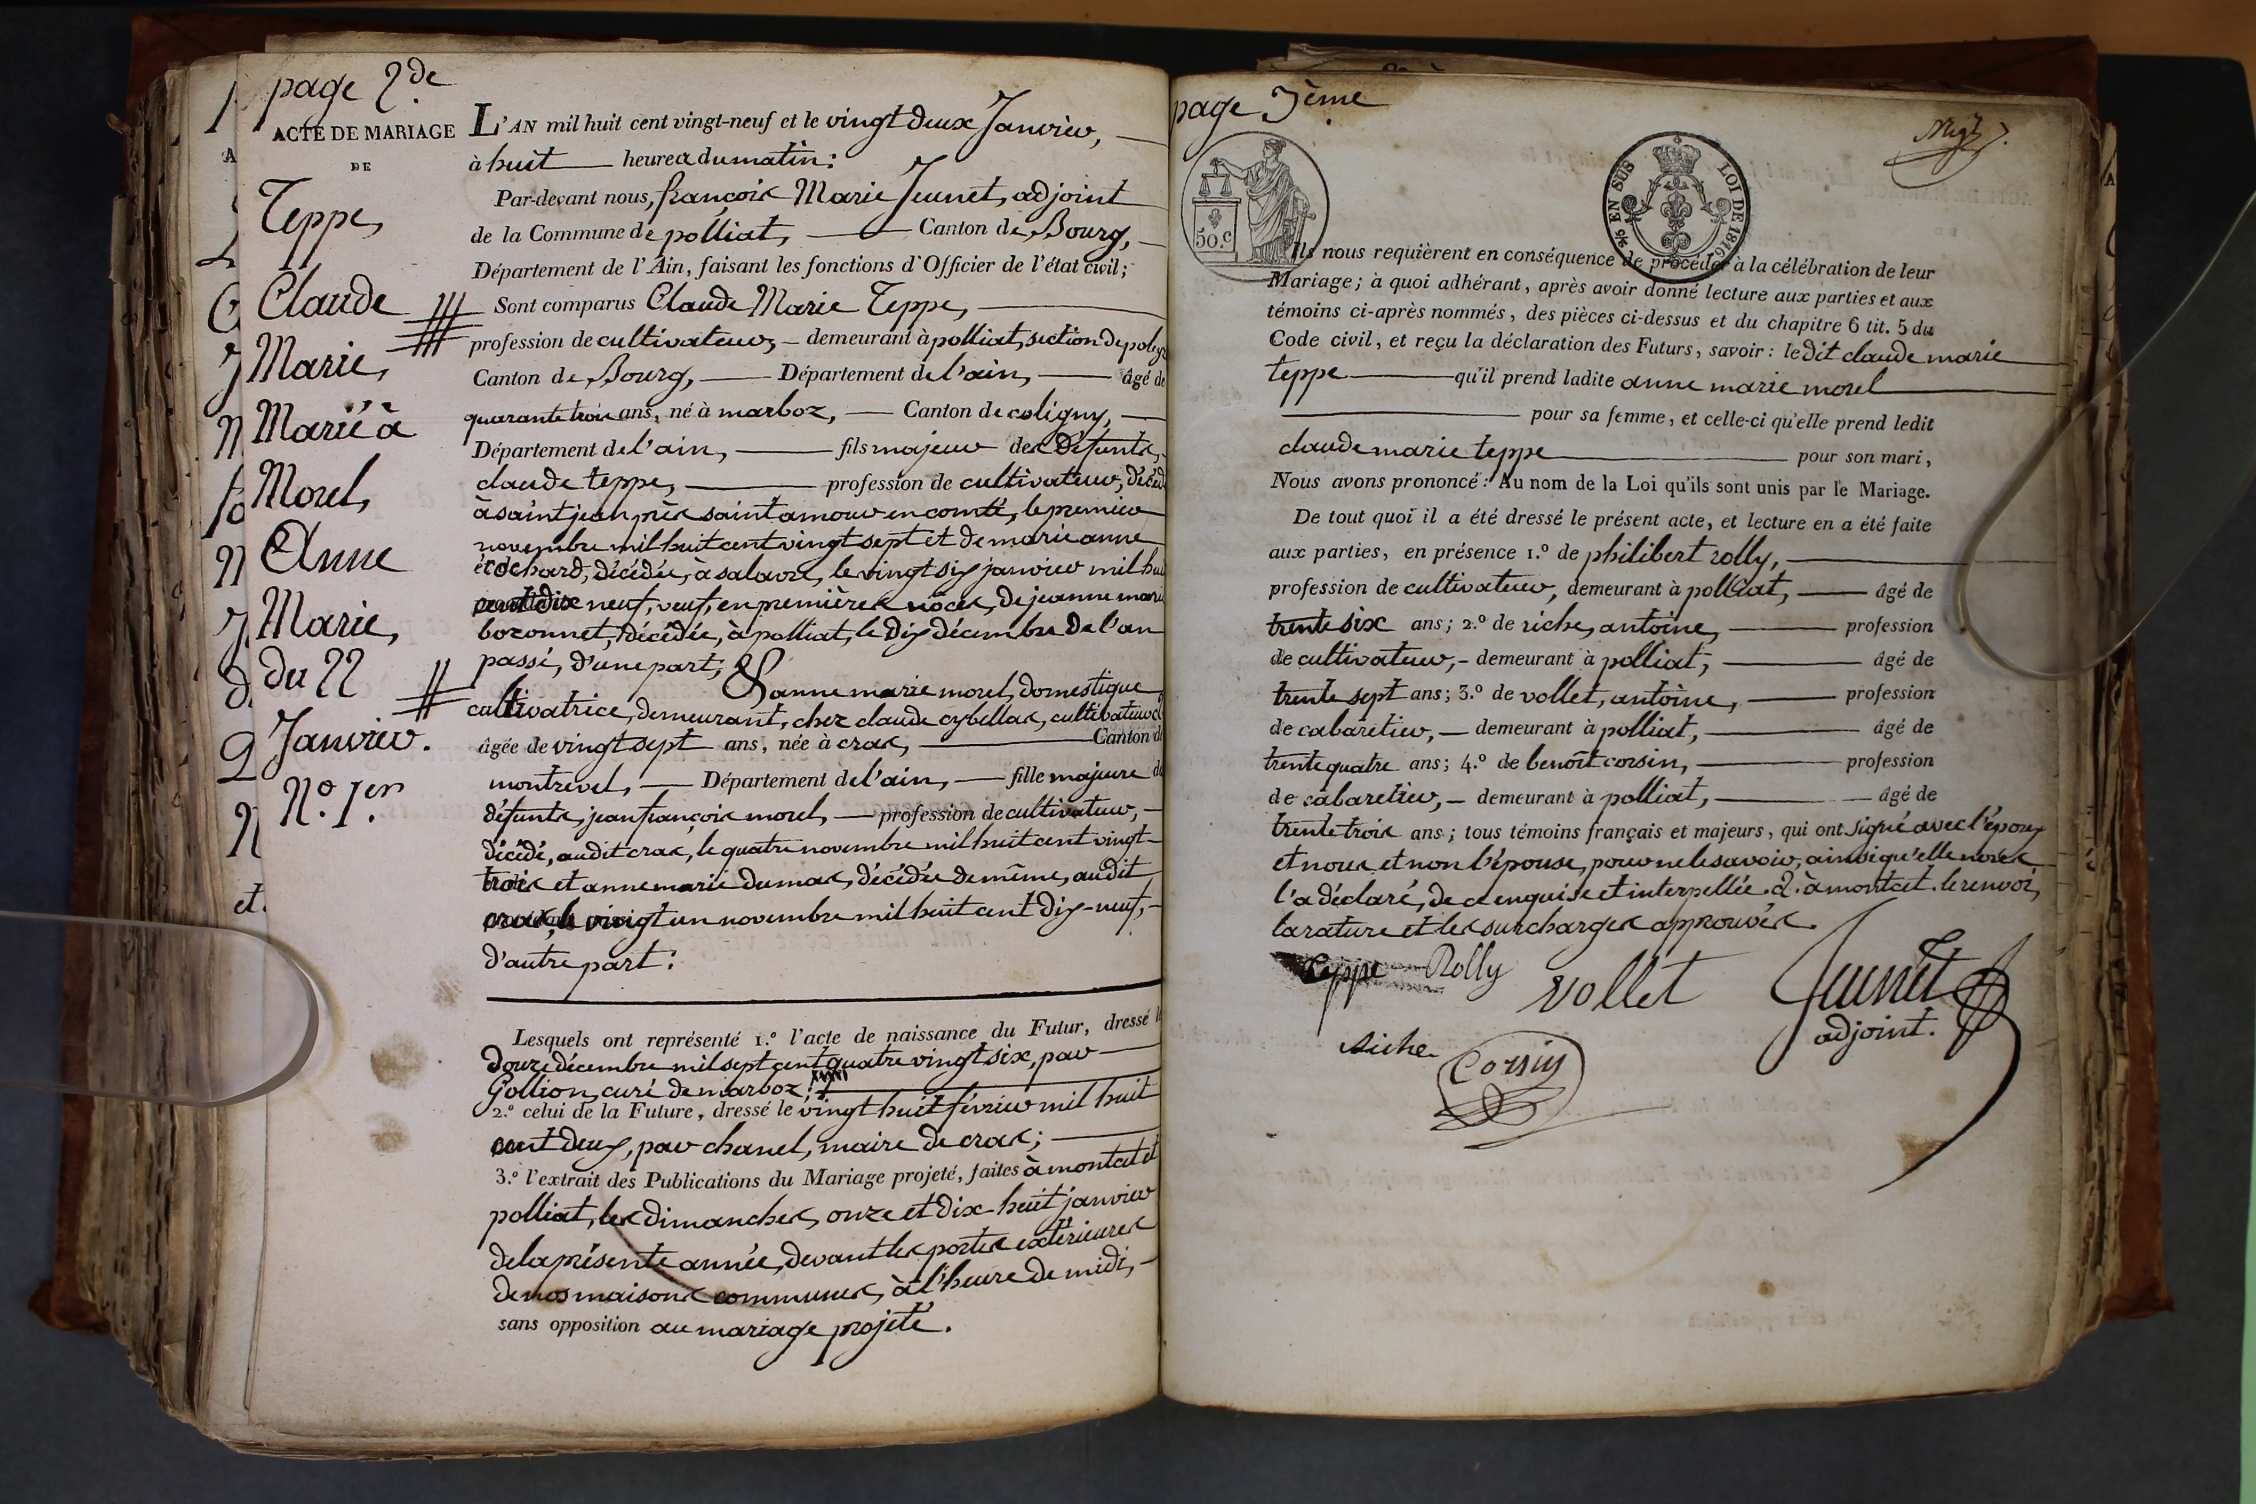 page 2de
ACTE DE MARIAGE
DE
Teppe,
Claude
Marie,
Marié à
Morel,
Anne
Marie,
du 22
Janvier.
N.o 1.er
L'AN mil huit cent vingt-neuf et le vingt deux Janvier,
à huit heures du matin;
Par-devant nous, françois Marie Jeunet, adjoint
de la Commune de polliat, Canton de Bourg,
Département de l'Ain, faisant les fonctions d'Officier de l'état civil;
Sont comparus Claude Marie Teppe,
profession de cultivateur, demeurant à polliat, section de
Canton de Bourg, Département de l'ain, âgé de
quarante trois ans, né à marboz, Canton de coligny,
Département de l'ain, fils majeur des défunts,
claude teppe, profession de cultivateur, décédé
à saint jean près saint amour en comté, le premier
novembre mil huit cent vingt sept et de marie anne
écochard, décédée, à salavre, le vingt six janvier mil huit
cent dix neuf, veuf, en premières nôces, de jeanne marie
bozonnet, décédée, à polliat, le dix décembre de l'an
passé, d'une part; &
anne marie morel, domestique
cultivatrice, demeurant, chez claude cybellas, cultivateur
âgée de vingt sept ans, née à cras, Canton de
montrevel, Département de l'ain, fille majeure de
défunts, jean françois morel, profession de cultivateur,
décédé, audit cras, le quatre novembre mil huit cent vingt-
trois et anne marie dumas, décédée de même, audit
cras, le vingt un novembre mil huit cent dix-neuf,
d'autre part:
Lesquels ont représenté 1.º l'acte de naissance du Futur, dressé le
douze décembre mil sept cent quatre vingt six, par
Gollion, curé de marboz;
2.º celui de la Future, dressé le vingt huit février mil huit
cent deux, par chanel, maire de cras;
3.º l'extrait des Publications du Mariage projeté, faites à montcet et
polliat, les dimanches, onze et dix-huit janvier
de la présente année, devant les portes extérieures
de nos maisons communes, à l'heure de midi,
sans opposition au mariage projeté.
page 3ème
50.c
EN SUS LOI DE 1816
Ils nous requièrent en conséquence de procéder à la célébration de leur
Mariage; à quoi adhérant, après avoir donné lecture aux parties et aux
témoins ci-après nommés, des pièces ci-dessus et du chapitre 6 tit. 5 du
Code civil, et reçu la déclaration des Futurs, savoir: le dit claude marie
teppe qu'il prend ladite anne marie morel
pour sa femme, et celle-ci qu'elle prend ledit
claude marie teppe pour son mari,
Nous avons prononcé: Au nom de la Loi qu'ils sont unis par le Mariage.
De tout quoi il a été dressé le présent acte, et lecture en a été faite
aux parties, en présence 1.º de philibert rolly,
profession de cultivateur, demeurant à polliat, âgé de
trente six ans; 2.º de riche, antoine, profession
de cultivateur, demeurant à polliat, âgé de
trente sept ans; 3.º de vollet, antoine, profession
de cabaretier, demeurant à polliat, âgé de
trente quatre ans; 4.º de benoît corsin, profession
de cabaretier, demeurant à polliat, âgé de
trente trois ans; tous témoins français et majeurs, qui ont signé avec l'époux
et nous et non l'épouse, pour ne le savoir, ainsi qu'elle nous
l'a déclaré, de ce enquise et interpellée. 2. à montcet. le renvoi,
la rature et les surcharges approuvés.
teppe Rolly vollet Jeunet
adjoint.
Riche
Corsin